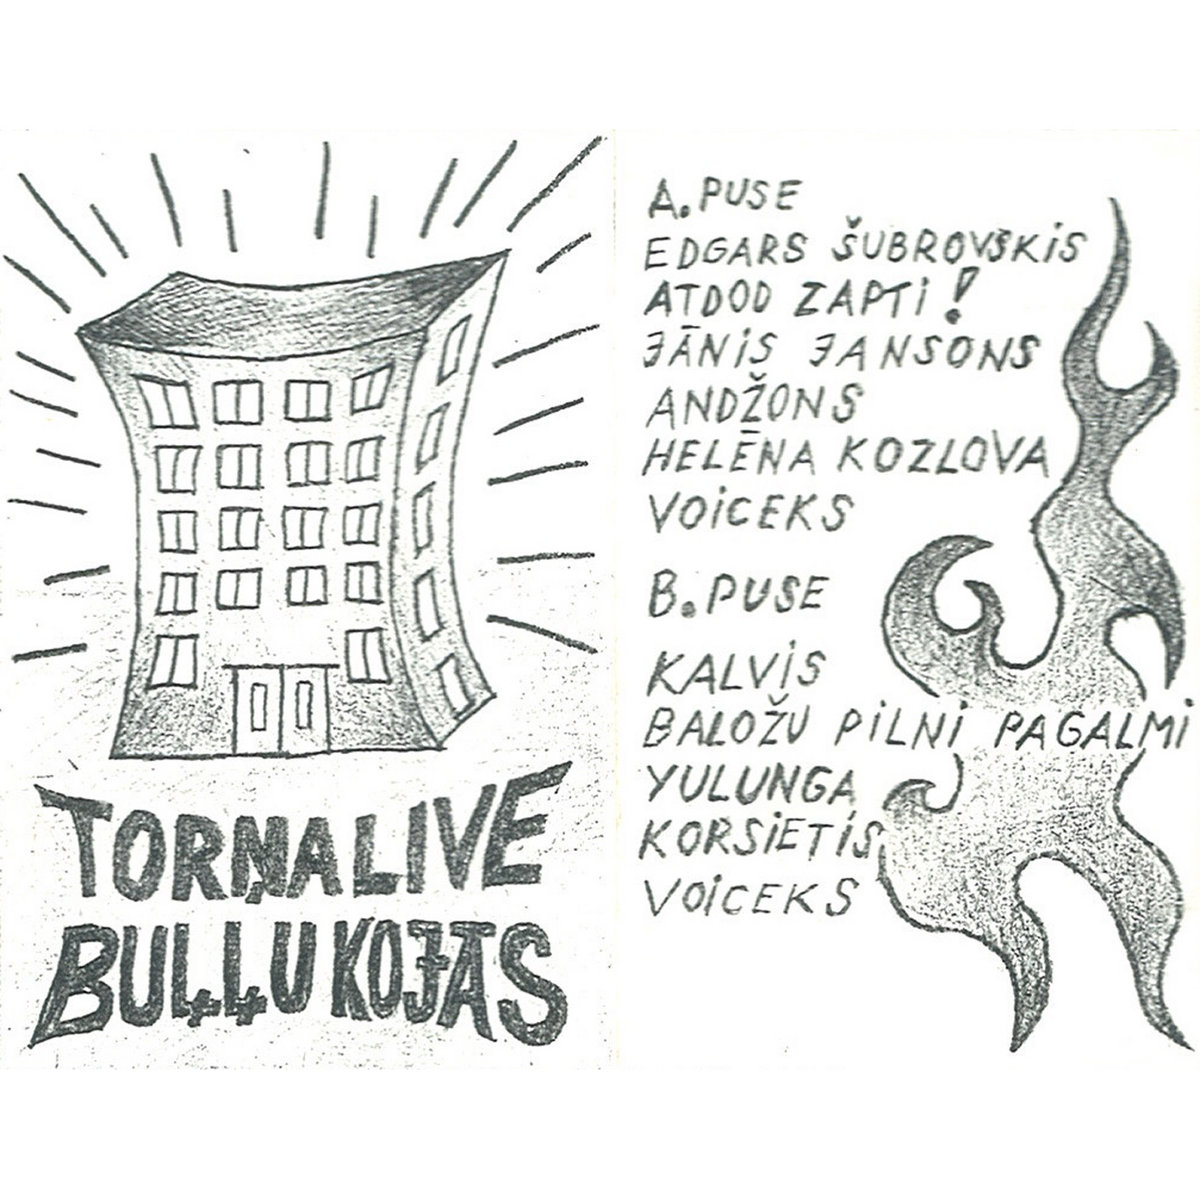 TORŅALIVE
BUĻĻU KOJĀS
A. PUSE
EDGARS ŠUBROVSKIS
ATDOD ZAPTI!
JĀNIS JANSONS
ANDŽONS
HELĒNA KOZLOVA
VOICEKS
B. PUSE
KALVIS
BALOŽU PILNI PAGALMI
YULUNGA
KORSIETIS
VOICEKS